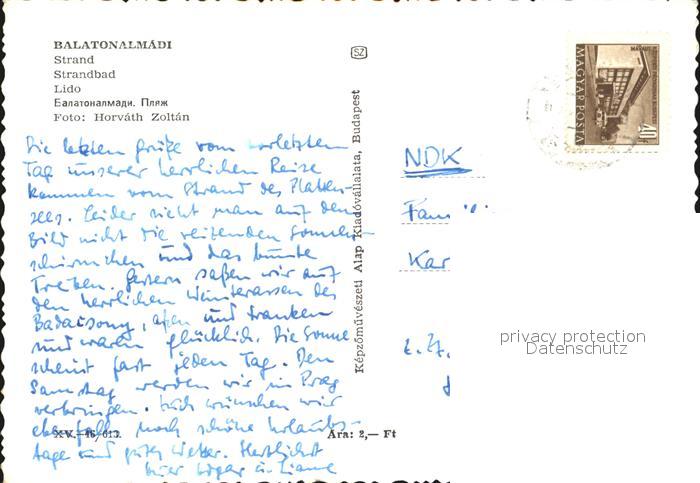 BALATONALMÁDI
Strand
Strandbad
Lido
Балатоналмади. Пляж
Foto: Horváth Zoltán
SZ
MAGYAR POSTA
Die letzten Grüße vom vorletzten
Tag unserer herrlichen Reise
kommen vom Strand des Platten-
sees. Leider sieht man auf dem
Bild nicht die reizenden Sonnen-
schirmchen und das bunte
Treiben. Gestern saßen wir auf
den herrlichen des
Badacsony, aßen und tranken
und waren glücklich. Die Sonne
scheint fast jeden Tag. Den
Samstag werden wir in Prag
verbringen. Euch wünschen wir
ebenfalls noch schöne Urlaubs-
tage und gutes Wetter. Herzlichst
XV.—16/613.
Ára: 2,— Ft
Képzőművészeti Alap Kiadóvállalata, Budapest
NDK
Fam
Kar
z. Zt.
privacy protection
Datenschutz